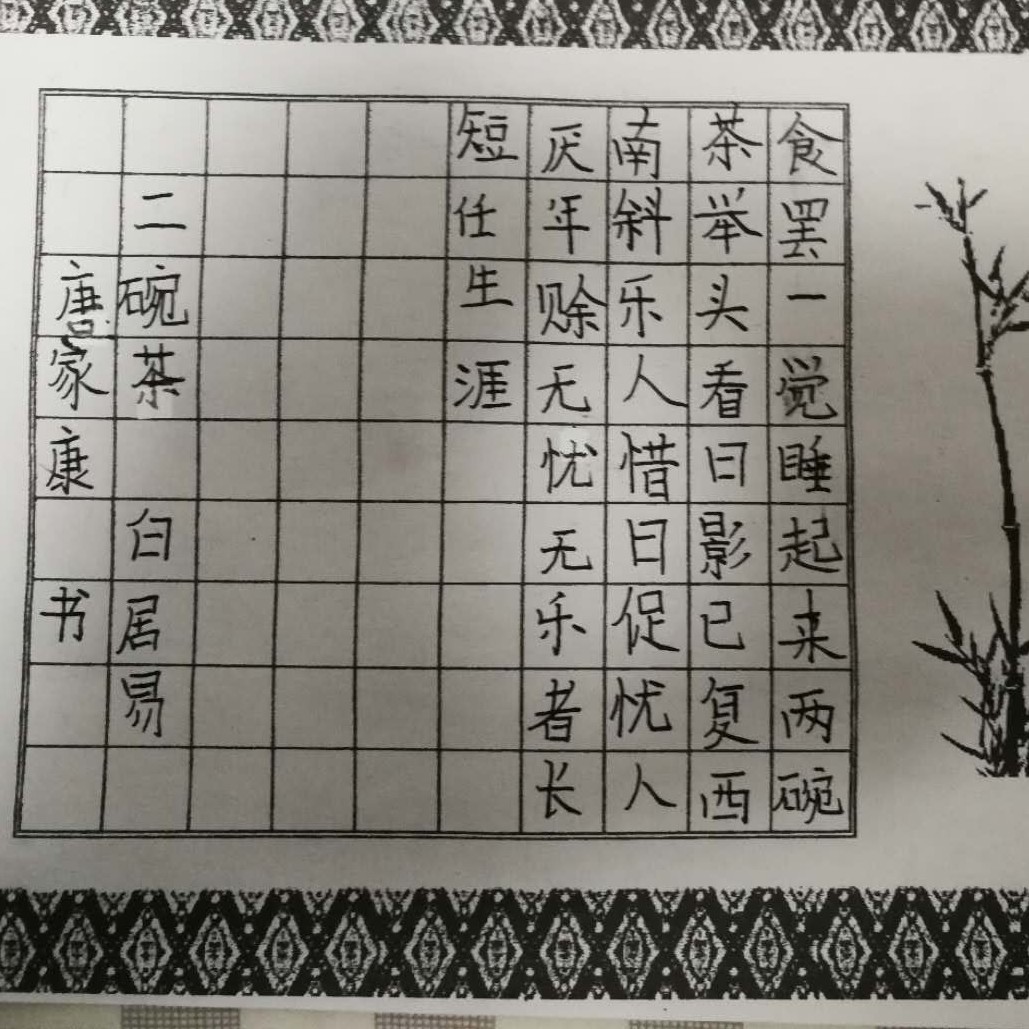 食罢一觉睡起来两碗
茶举头看日影已复西
南斜乐人惜日促忧人
厌年赊无忧无乐者长
短任生涯
二碗茶 白居易
唐家康 书